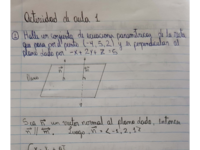 Actividad de aula 1
① Halla un conjunto de ecuaciones paramétricas de la recta
que pasa por el punto (-4,5,2) y es perpendicular al
plano dado por -x+2y+z=5
Sea n⃗ un vector normal al plano dado, entonces
v⃗ // n⃗. Luego n⃗ = <-1,2,1>